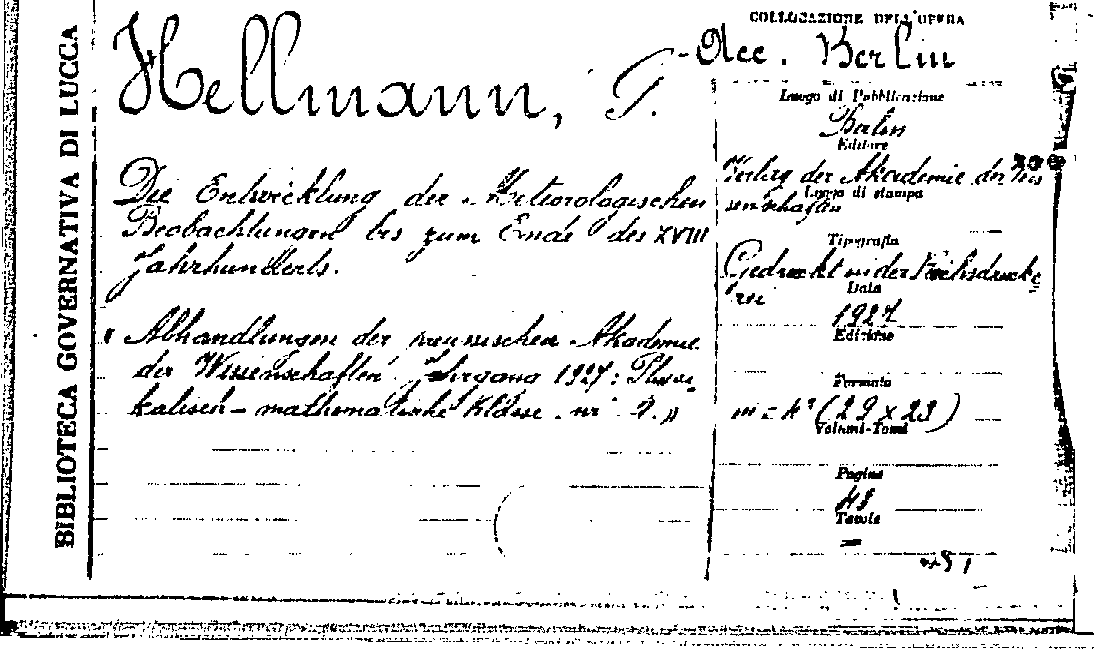 BIBLIOTECA GOVERNATIVA DI LUCCA
Hellmann, G.
Die Entwicklung der Meteorologischen
Beobachtungen bis zum Ende des XVIII
Jahrhunderts.
" Abhandlungen der preussischen Akademie
der Wissenschaften Jahrgang 1927: Physi-
kalisch-mathematische Klasse. nr
COLLOCAZIONE DELL'OPERA
Acc. Berlin
Luogo di Pubblicazione
Berlin
Editore
Verlag der Akademie der Wis
senschaften
Luogo di stampa
Tipografia
Gedruckt in der Reichsdrucke
rei
Data
1927
Edizione
Formato
in - 4° (29 x 23)
Volumi-Tomi
Pagine
48
Tavole